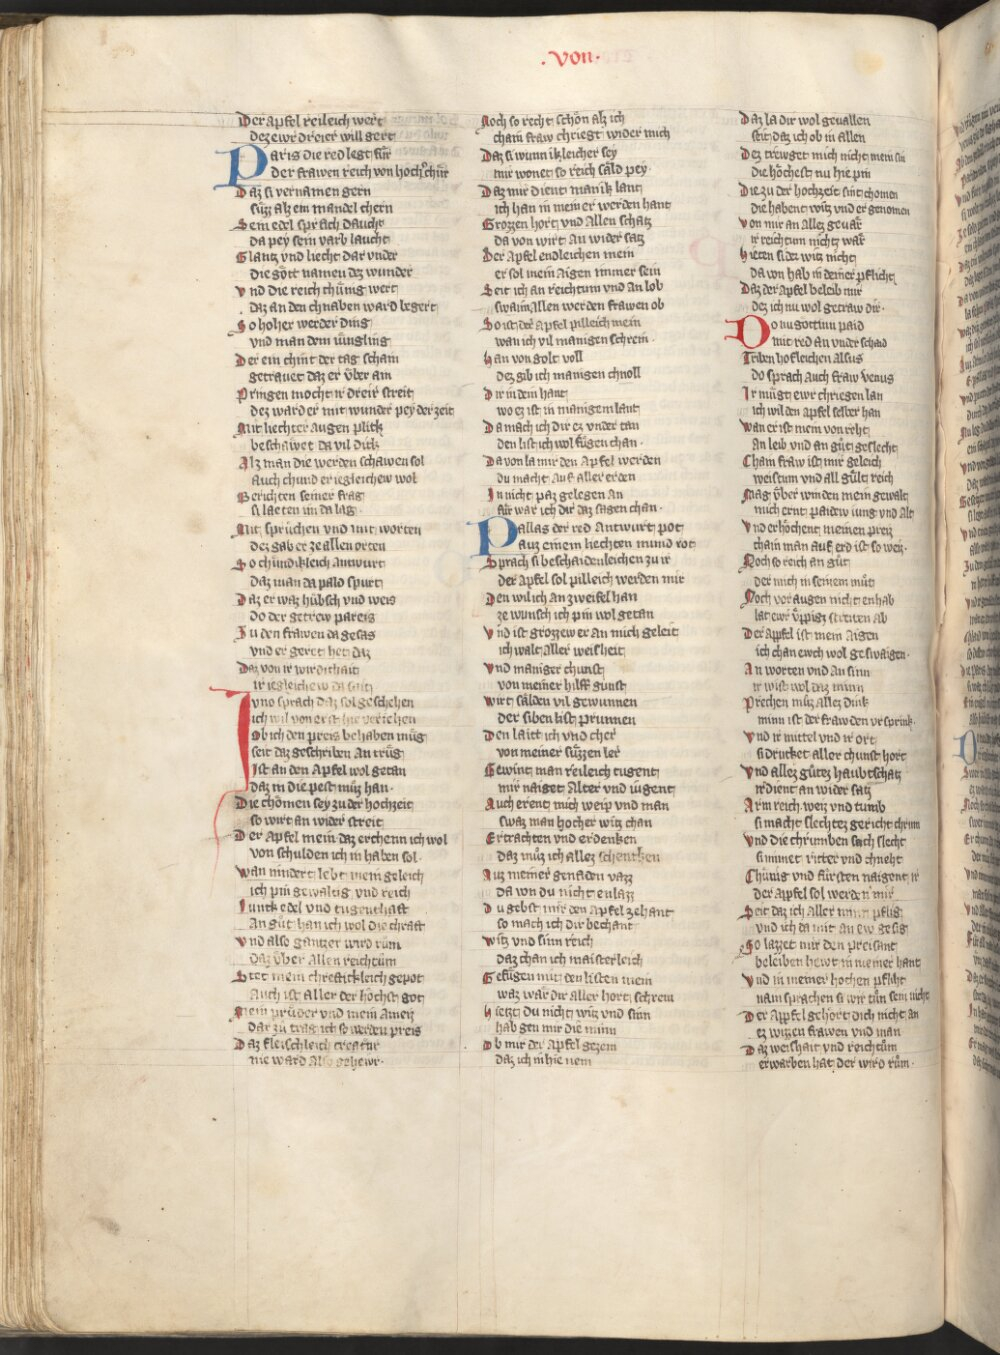 .von.
Der apfel reileich wert
dez ewr dreier will gert
Paris die red legt für
der frawen reich von hoch chür
Daz si vernamen gern
süzz alz ein mandel chern
Sein edel sprach daucht
da pey sein varb laucht
Glantz vnd liecht dar vnder
die gött namen dez wunder
vnd die reich chünig wert
daz an den chnaben ward legert
So hoher werder ding
vnd man dem iüngling
Der ein chint der tag schain
getrauet daz er vber ain
Pringen mocht ir dreir streit
dez ward er mit wunder pey der zeit
Mit liechter augen plik
beschawet da vil dik
Alz man die werden schawen sol
auch chund er iegleichew wol
Berichten seiner frag
si laeten im da lag
Mit sprüchen vnd mit worten
dez gab er ze allen orten
So chündikleich antwurt
daz man da palo spurt
Daz er waz hübsch vnd weis
do der getrew pareis
Zu den frawen da gesas
vnd er geret het daz
Daz von ir wirdichait
ir iegleichew da sait
Juno sprach daz sol geschehen
ich wil von erst hie veriehen
ob ich den preis behaben müg
seit daz geschriben an trüg
Ist an den apfel wol getan
daz in die pest müz han
Die chömen sey zu der hochzeit
so wirt an wider streit
Der apfel mein daz erchenn ich wol
von schulden ich in haben sol
wan nindert lebt mein geleich
ich pin gewaltig vnd reich
Junck edel vnd tugenthaft
an güt han ich wol die chraft
vnd also gantzer wird rüm
daz vber allen reichtüm
Stet mein chreftickleich gepot
auch ist aller der höchst got
Mein prüder vnd mein ameis
dar zu trag ich so werden preis
Daz fleischleich creatur
nie ward also gehewr
Noch so recht schön alz ich
chain fraw chriegt wider mich
Daz si wunnikleicher sey
mir wonet so reich säld pey
Daz mir dient manik lant
ich han in meiner werden hant
Grozzen hort vnd allen schatz
da von wirt an wider satz
Der apfel endleichen mein
er sol mein aigen immer sein
Seit ich an reichtum vnd an lob
swaim allen werden frawen ob
So ist der apfel pilleich mein
wan ich vil manigen schrein
han von golt voll
dez gib ich manigen chnoll
Dir in dein hant
wo ez ist in manigem lant
Da mach ich dir ez vnder tan
den list ich wol fügen chan
Da von la mir den apfel werden
du macht auf aller erden
In nicht paz gelegen an
für war ich dir daz sagen chan
Pallas der red antwurt pot
auz einem liechten mund rot
Sprach si beschaidenleichen zu ir
der apfel sol pilleich werden mir
Den wil ich an zweifel han
ze wunsch ich pin wol getan
vnd ist grozzew er an mich geleit
ich walt aller weisheit
vnd maniger chunst
von meiner hilff gunst
wirt sälden vil gewunnen
der siben list prunnen
Den laitt ich vnd cher
von meiner süzzen ler
Gewint man reileich tugent
mir naiget alter vnd iugent
auch erent mich weip vnd man
swaz man hocher witz chan
Ertrachten vnd erdenken
daz müz ich allez schenken
Auz meiner genaden vazz
da von du nicht enlazz
Du gebst mir den apfel zehant
so mach ich dir bechant
witz vnd sinn reich
daz chan ich maisterleich
Gefügen mit den listen mein
waz wär dir aller hort schrein
hietzt du nicht witz vnd sinn
hab gen mir die minn
Ob mir der apfel gezem
daz ich in hie nem
Daz la dir wol geuallen
seit daz ich ob in allen
Dez trewget mich nicht mein sin
die höchest nu hie pin
Die zu der hochzeit sint chomen
die habent witz vnd er genomen
von mir an allez geuär
ir reichtum nichtz wär
hieten si der witz nicht
da von hab in deiner pflicht
Daz der apfel beleib mir
dez ich nu wol getraw dir
Do nu göttinn paid
mit red an vnder schaid
Triben hofleichen alsus
do sprach auch fraw venus
Ir mügt ewr chriegen lan
ich wil den apfel selber han
wan er ist mein von reht
an leib vnd an güt geslecht
Cham fraw ist mir geleich
weistum vnd all gült reich
Mag vber winden mein gewalt
mich ernt paidew iung vnd alt
vnd erhöchent meinen preiz
chain man auf erd ist so weiz
Noch so reich an güt
der mich in seinem müt
Noch vor augen nicht enhab
lat ewr vppigz streiten ab
Der appfel ist mein aigen
ich chan ewch wol geswaigen
An worten vnd an sinn
ir wist wol daz minn
Prechen müz allez dink
minn ist der frawden vrsprink
vnd ir mittel vnd ir ort
si drucket aller chunst hort
vnd allez gütez haubtschatz
ir dient an wider satz
Arm reich weiz vnd tumb
si macht slechtez gericht chrum
vnd die chrumben sach slecht
si nimet ritter vnd chneht
Chünig vnd fürsten naigent ir
der appfel sol werden mir
Seit daz ich aller minn pflig
vnd ich da mit an ew gesig
So lazzet mir den preisant
beleiben hewt in meiner hant
vnd in meiner hochen pfliht
nain sprachen si wir tün sein nicht
Der appfel gehört dich nicht an
ez wizzen frawen vnd man
Daz weishait vnd reichtüm
erworben hat der wird rüm